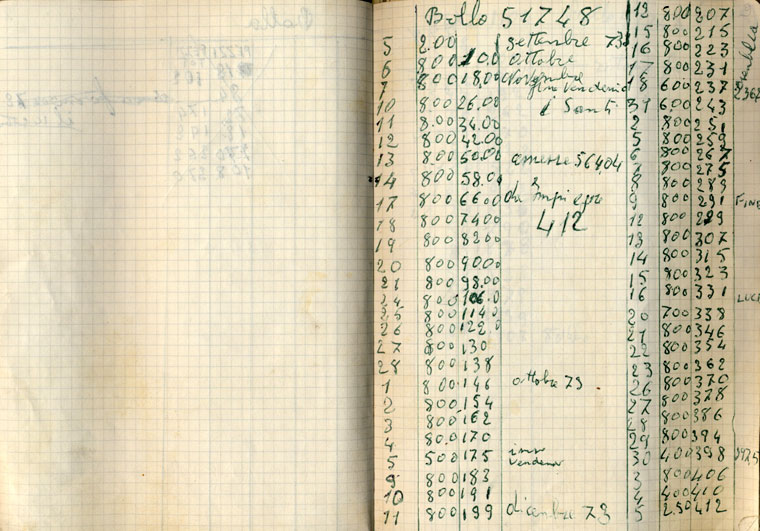 Bollo 51748
5 2.00 settembre 73
6 800 10.0 ottobre
7 800 18,00 Novembre
fine vendemia
10 8.00 26.00 i Santi
11 8.00 34.00
12 8.00 42.00
13 8.00 50.00 56404
14 800 58.0
17 800 66.00 da
18 800 7400 412
19 800 8200
20 800 9000
21 800 98.00
24 800 106.0
25 800 114.0
26 800 122.0
27 800 130
28 800 138
1 800 146 ottobre 73
2 800 154
3 800 162
4 80.0 170
5 500 175 inizio
vendemia
9 800 183
10 800 191
11 800 199 dicembre 73
12 800 207
15 800 215
16 800 223
17 800 231
18 600 237
31 600 243
2 800 251
5 800 259
6 800 267
800 275
8 800 283
9 800 291 FINE
12 800 299
13 800 307
14 800 315
15 800 323
16 800 331
20 700 338
21 800 346
22 800 354
23 800 362
26 800 370
27 800 378
28 800 386
29 800 394
30 400 398
3 800 406
4 400 410
5 2.50 412